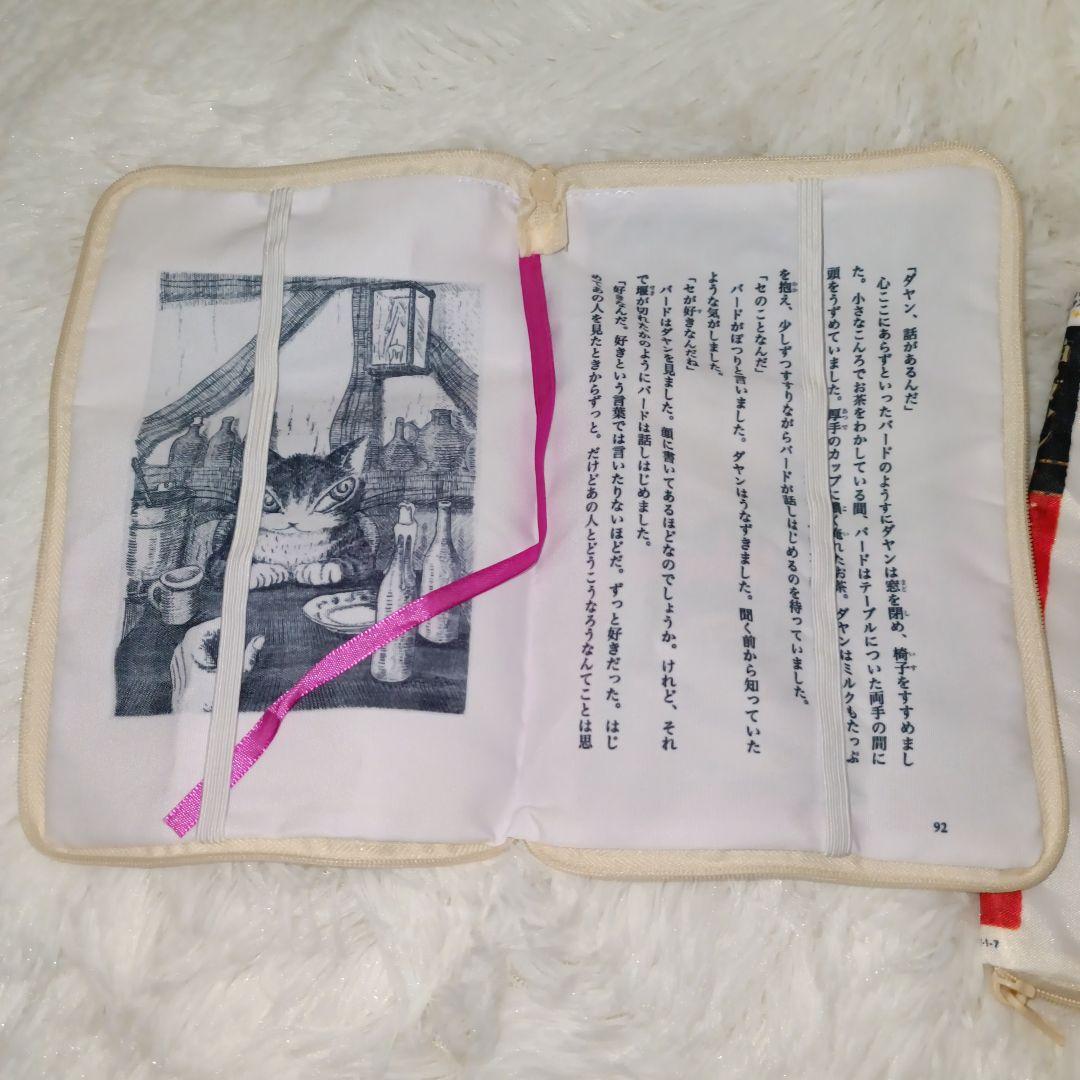 「ダヤン、話があるんだ」
心ここにあらずといったバードのようすにダヤンは窓を閉め、椅子をすすめまし
た。小さなこんろでお茶をわかしている間、バードはテーブルについた両手の間に
頭をうずめていました。厚手のカップに濃く淹れたお茶。ダヤンはミルクもたっぷ
を抱え、少しずつすすりながらバードが話しはじめるのを待っていました。
「セのことなんだ」
バードがぽつりと言いました。ダヤンはうなずきました。聞く前から知っていた
ような気がしました。
「セが好きなんだね」
バードはダヤンを見ました。顔に書いてあるほどなのでしょうか。けれど、それ
で堰が切れたかのようにバードは話しはじめました。
「好きなんだ。好きという言葉では言いたりないほどだ。ずっと好きだった。はじ
あの人を見たときからずっと。だけどあの人とどうこうなろうなんてことは思
92